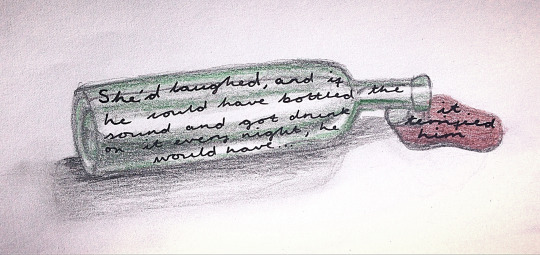 She'd laughed, and if
he could have bottled the
sound and got drunk
on it every night, he
would have...
it
terrified
him